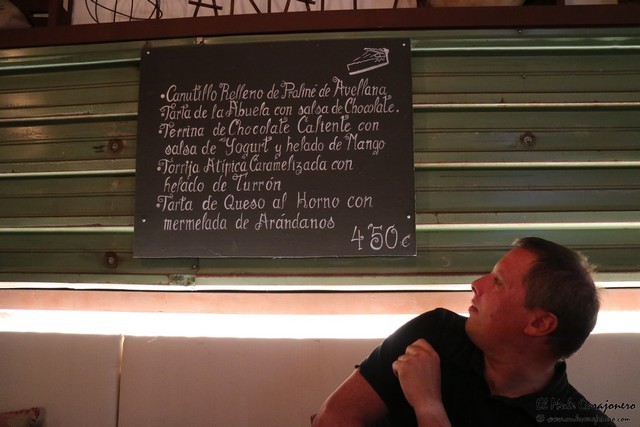 •Canutillo Relleno de Praliné de Avellana
•Tarta de la Abuela con salsa de Chocolate.
•Terrina de Chocolate Caliente con
salsa de Yogurt y helado de Mango
•Torrija Atípica Caramelizada con
helado de Turrón
•Tarta de Queso al Horno con
mermelada de Arándanos
4'50€